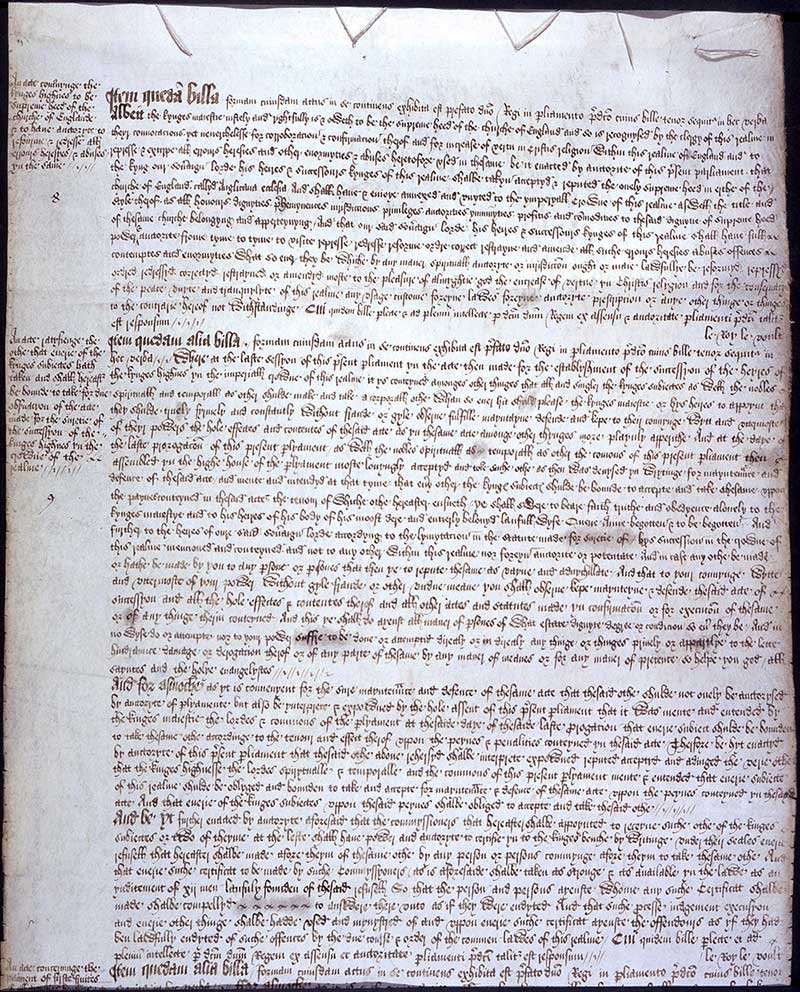 An acte concernynge the
kynges highnes to be
supreme heed of the
churche of Englande
& to have auctoryte to
reforme & redresse all
errours heresyes & abuses
yn the same
8
Item quedam billa formam cuiusdam actus in se continens exhibita est prefato dno Regi in parliamento predco cuius bille tenor sequit in hec verba
Albeit the kynges majestie justely and rightfully is & oweth to be the supreme heed of the churche of England and so is recognysed by the clergy of this realme in
they convocacions yet neverthelesse for corroboracion & confirmacion therof and for increase of vertu in Cristis religion within this realme of England and to
represse & extirpe all errours heresies and other enormytyes & abuses heretofore used in the same be it enacted by auctorite of this present parliament that
the kyng our soveraign lorde his heires & successours kynges of this realme shalbe taken acceptyd & reputed the onely supreme heed in erthe of the
churche of England callyd Anglicana ecclesia And shall have & enjoye annexed and unyted to the ymperyall crowne of this realme aswell the title and
style therof as all honours dignyties prehemynences jurisdiccions privileges auctorities ymmunytyes profitis and comodities to the said dignyte of supreme heed
of the same churche belongyng and apperteynyng And that our said soveraign lorde his heires & successours kynges of this realme shall have full
power & auctorite frome tyme to tyme to visite represse redresse reforme order correct restrayne and amende all suche errours heresies abuses offences
contemptes and enormytyes what so ever they be whiche by any maner spirituall auctoryte or jurisdiccion ought or maie lawfullye be reformyd repressed
ordred redressyd correctyd restrayned or amendyd moste to the pleasure of almyghtie god the encrease of vertue yn Christis religion and for the conservacion
of the peace unyte and tranquylyte of this realme any usage custome foreyne lawes foreyne auctoryte prescription or anye other thinge or thinges
to the contrarie hereof not withstandinge Cui quidem bille plecte & ad plenum intellecte p dcm dnm Regem ex assensu & auctoritate parliamenti predci taliter
est responsum
le Roy le veult
An acte ratefienge the
othe that everie of the
kynges subiectes hath
taken and shall hereaft
be bounde to take for due
observacion of the acte
made for the suretie of
the succession of the
kynges highnes yn the
crowne of the
realme
9
Item quedam alia billa formam cuiusdam actus in se continens exhibita est prefato dno Regi in parliamento predco cuius bille tenor sequit in
hec verba Where at the laste session of this present parliament yn the acte then made for the establishment of the succession of the heires of
the kynges highnes yn the imperiall crowne of this realme it ys conteyned amonges other thinges that all and singler the kynges subiectes as well the nobles
spirituall and temporall as other shulde make and take a corporall othe whan so ever hit shuld please the kynges majestie or hys heires to appoynt that
they shulde truely fyrmely and constantly without fraude or gyle observe fulfille mayntayne defende and kepe to their connynge wytt and uttermoste
of they powers the hole effectes and contentes of the said acte as yn the same acte amonge other thynges more playnly appereth And at the daye of
the laste prorogacion of this present parliament as well the nobles spirituall & temporall as other the comons of this present parliament then
assembled yn the highe house of the parliament moste lovyngly acceptyd and toke suche othe as then was devysed yn writinge for mayntenance and
defence of the said acte and mente and intendyd at that tyme that every other the kynges subiectes shulde be bounde to accepte and take the same upon
the paynes conteyned in the said acte the tenour of whiche othe hereafter ensueth ye shall swere to beare faith truthe and obedyence alonely to the
kynges majestye and to his heires of his body of his moost dere and entierly belovyd laufull wyfe Quene Anne begotten & to be begotten And
further to the heires of oure said soveraign lorde accordyng to the lymytacion in the statute made for suretie of hys succession in the crowne of
this realme mencioned and conteyned and not to any other within this realme nor foreyn auctorite or potentate And in case any othe be made
or hathe be made by you to any persone or persones that then ye to repute the same as vayne and adnychillate And that to your connynge wytte
and uttermoste of your power without gyle fraude or other undue meane you shall observe kepe mayntene & defende the said acte of
succession and all the hole effectes & contentes therof and all other actes and statutes made yn confirmacion or for execucion of the same
or of any thinge therin conteyned And this ye shall do ayenst all maner of persones of what estate dignyte degree or condicion so ever they be And in
no wyse do or attempte nor to your power suffre to be done or attempted directly or indirectly any thinge or thinges prively or appartlye to the lette
hindrance damage or derogacion therof or of any parte of the same by any maner of meanes or for any maner of pretence so helpe you god all
sayntes and the holye evangelystes
And for asmoche as yt is convenyent for the sure mayntenance and defence of the same acte that the said othe shulde not onely be auctorysed
by auctoryte of parlyamente but also be interprete & expowned by the hole assent of this present parliament that it was mente and entended by
the kynges majestie the lordes & comons of the parlyament at the saide daye of the saide laste prorogacion that everie subiect shulde be bounden
to take the same othe accordinge to the tenour and effect therof uppon the peynes & penalities conteyned yn the said acte Therfore be hyt enacted
by auctoryte of this present parliament that the said othe above rehersyd shalbe interprete expowned reputed accepted and adiuged the verie othe
that the kinges highnesse the lordes spirituall & temporall and the commons of this present parlyament mente & entended that everie subiecte
of this realme shulde be obliged and bounden to take and accepte for mayntenance & defence of the same acte uppon the peynes conteyned yn the said
acte And that everie of the kynges subiectes uppon the said peynes shalbe obliged to accepte and take the said othe
And be yt further enacted by auctoryte aforesaid that the commyssioners that hereafter shalbe appoynted to receyve suche othe of the kinges
subiectes or two of theyme at the leste shall have power and auctoryte to certifie yn to the kinges benche by writinge under their seales everie
refusell that hereafter shalbe made afore theym of the same othe by any person or persons commynge afore theym to take the same othe And
that everie suche certificat to be made by suche commyssioners as is aforesaide shalbe taken as stronge & as available yn the lawe as an
inditement of xij men laufully founden of the said refusell So that the person and persones ayenste whome any suche Certificat shalbe
made shalbe compellyd to answere there unto as if they were endyted And that suche processe iudgement execucion
and everie other thinge shalbe hadde used and mynystred of and uppon everie suche certificat ayenste the offendours as yf they had
ben lawfully endyted of suche offences by the due course & order of the commen lawes of this realme Cui quidem bille plecte et ad
plenum intellecte p dcm dnm Regem ex assensu et auctoritate parliamenti predci taliter est responsum
le Roy le veult
An acte concernynge the
Item quedam alia billa formam cuiusdam actus in se continens exhibita est prefato dno Regi in parliamento predco cuius bille tenor